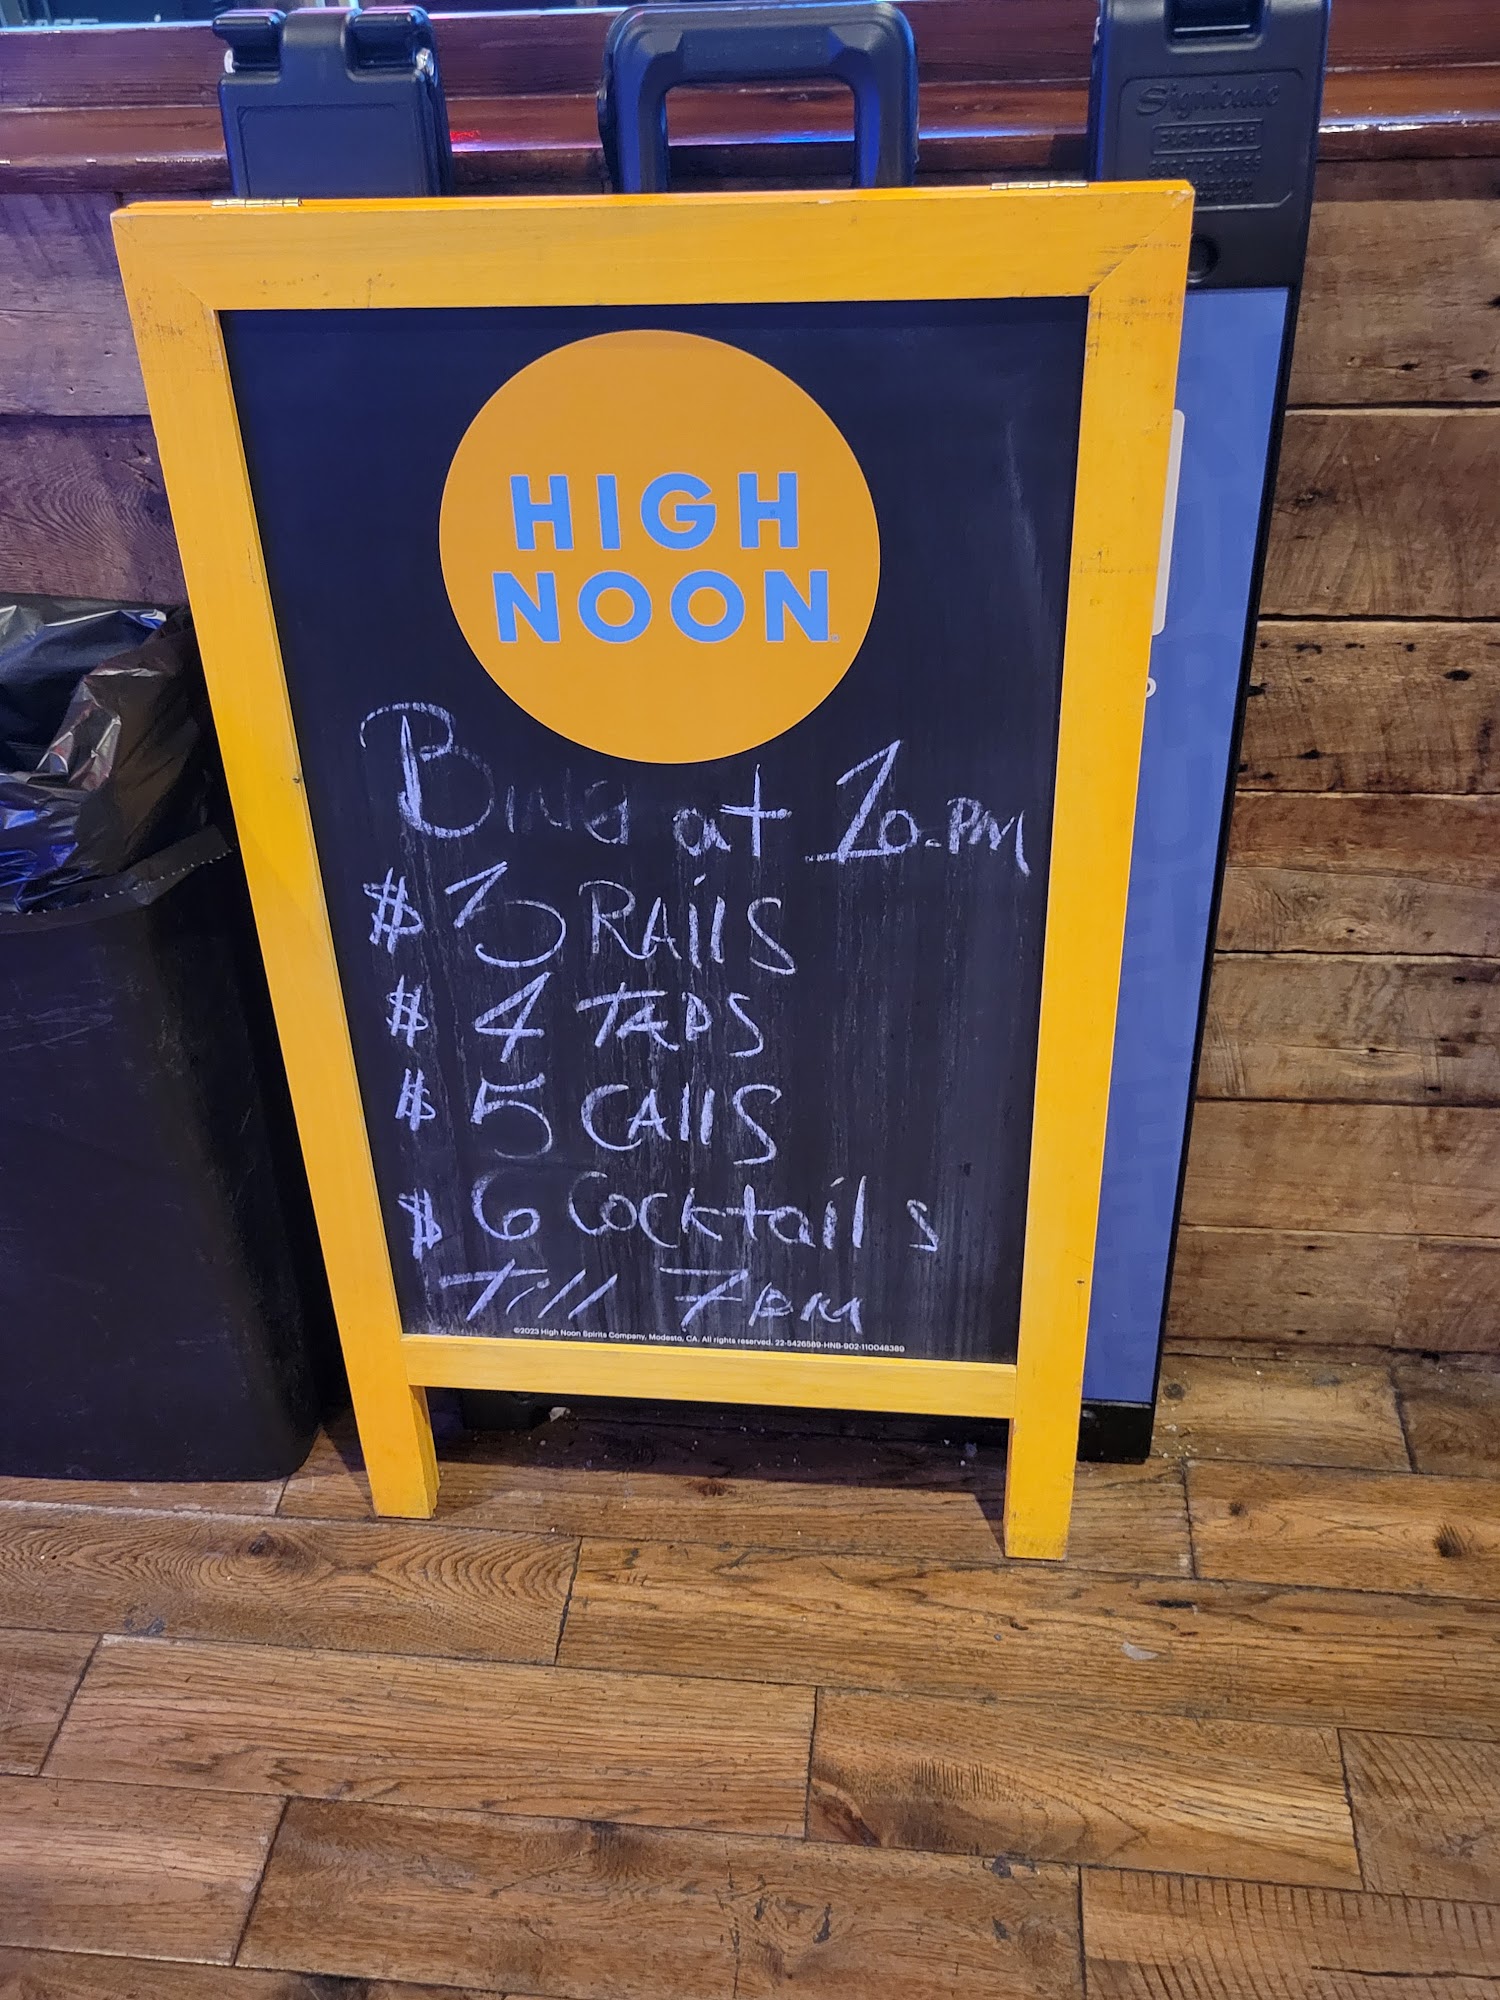 Signicade
HIGH
NOON
Bing at 10-PM
$ 3 RAilS
$ 4 TAPS
$ 5 CAllS
$ 6 Cocktails
Till 7PM
©2023 High Noon Spirits Company, Modesto, CA. All rights reserved. 22-5426589-HNB-902-110048389